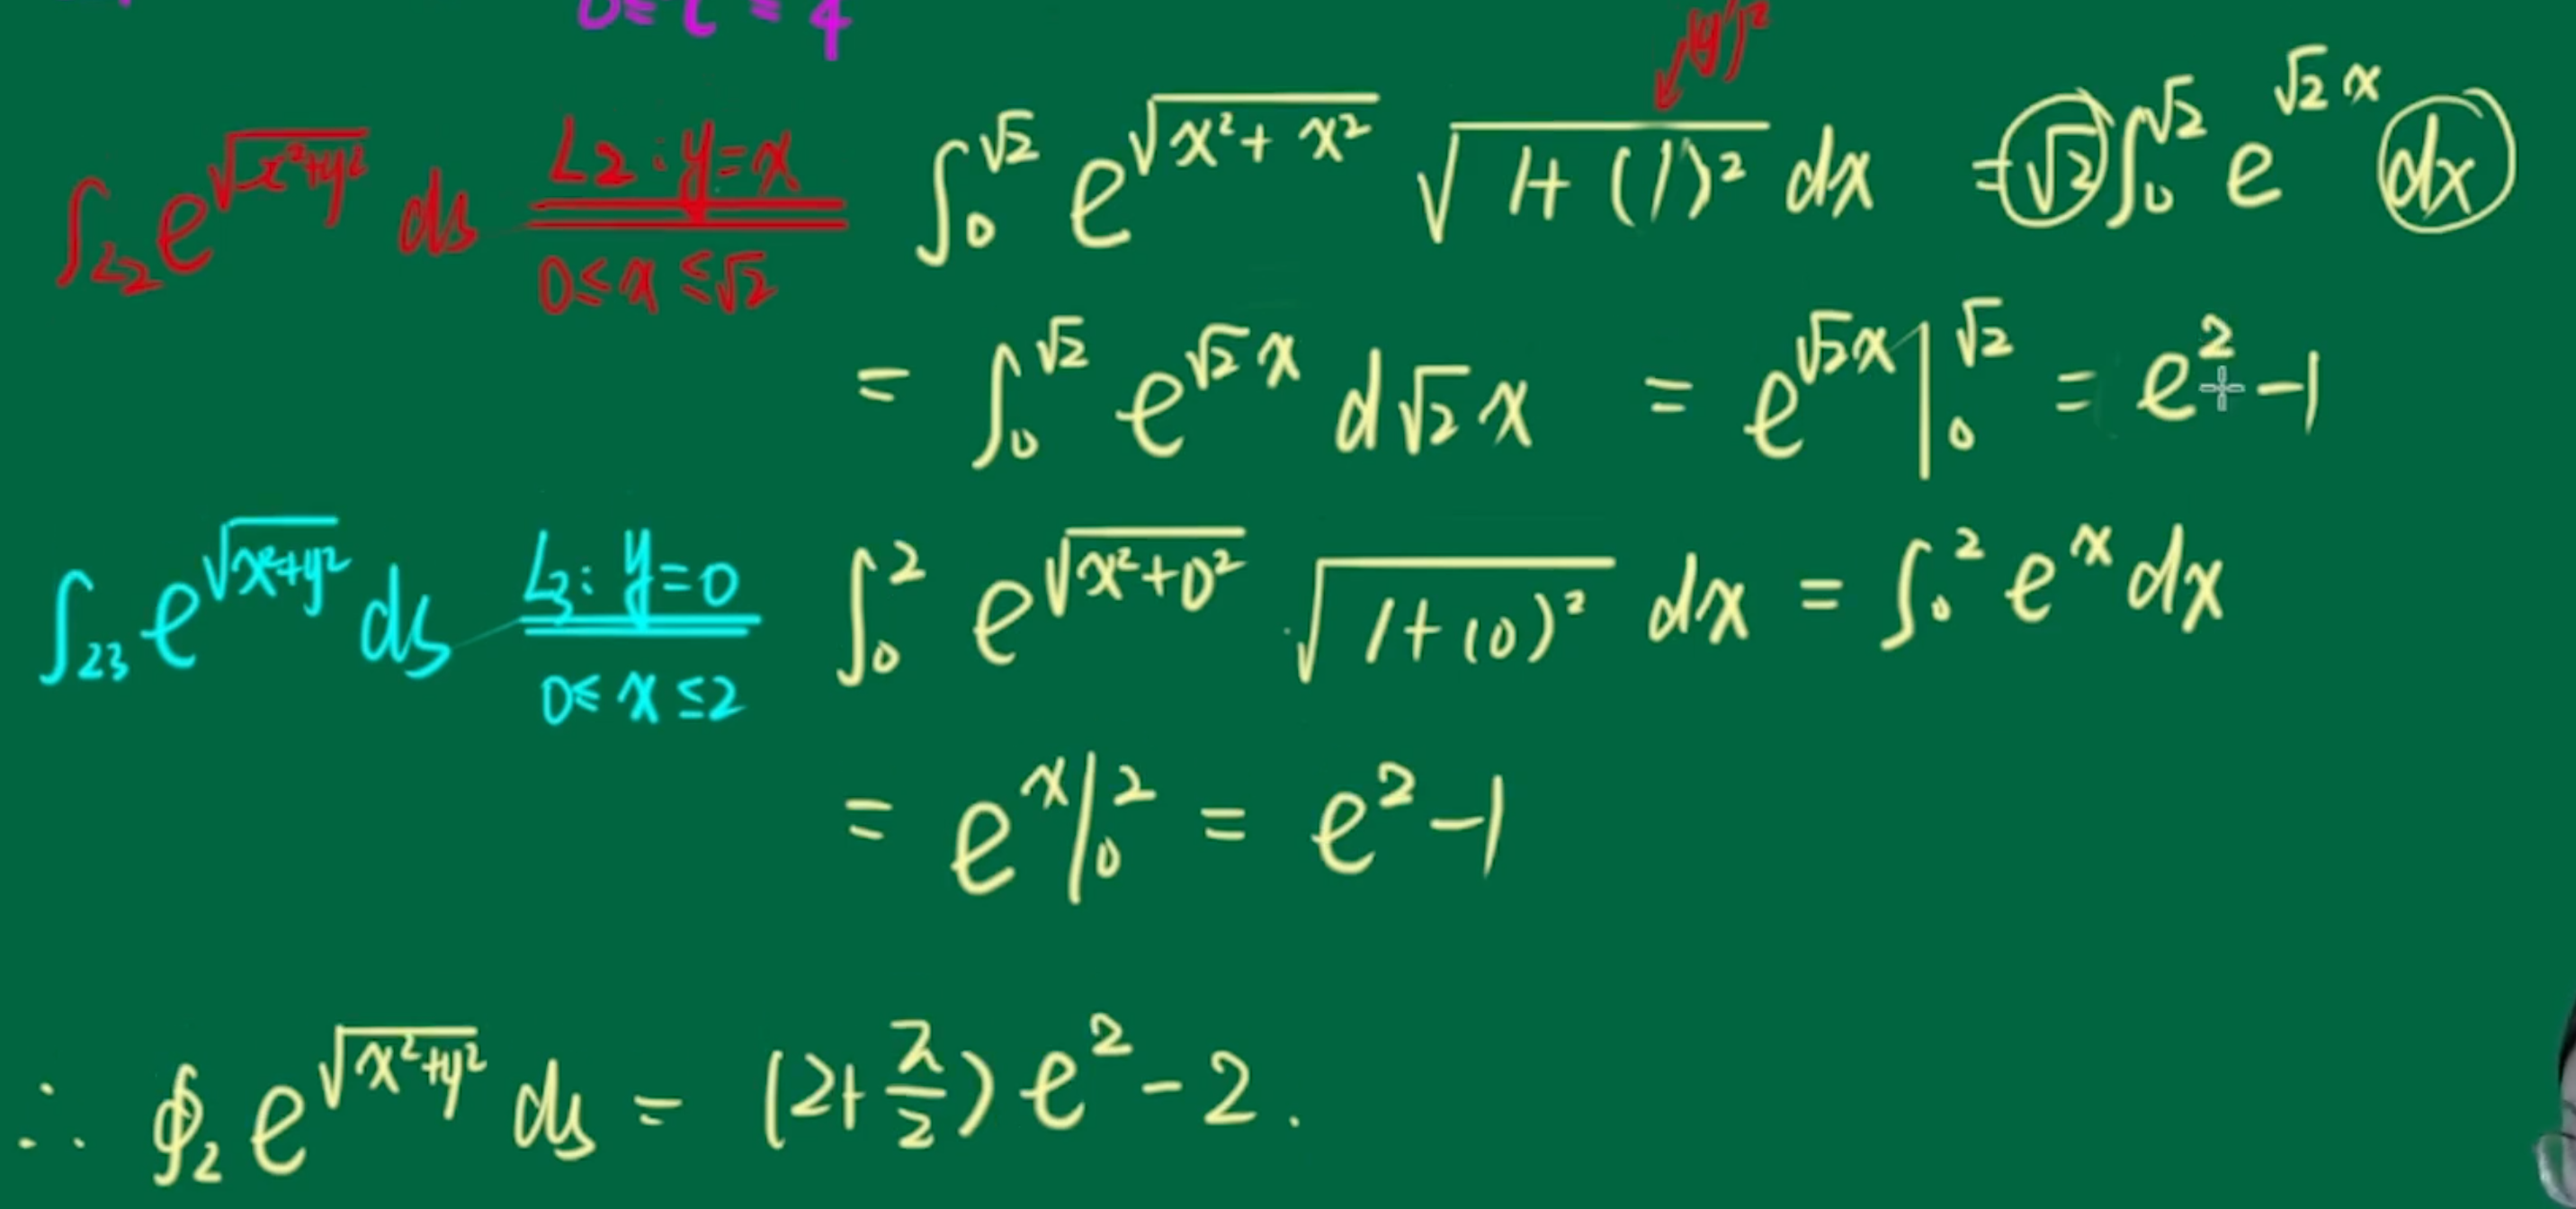 (y')²
∫_{L2} e^{√(x²+y²)} ds L2: y=x 0≤x≤√2 ∫_0^{√2} e^{√(x²+x²)} √(1+(1)²) dx = √2 ∫_0^{√2} e^{√2 x} dx
= ∫_0^{√2} e^{√2 x} d√2 x = e^{√2x} |_0^{√2} = e² - 1
∫_{L3} e^{√(x²+y²)} ds L3: y=0 0≤x≤2 ∫_0^2 e^{√(x²+0²)} √(1+(0)²) dx = ∫_0^2 e^x dx
= e^x |_0^2 = e² - 1
∴ ∮_L e^{√(x²+y²)} ds = (2+π/2) e² - 2.